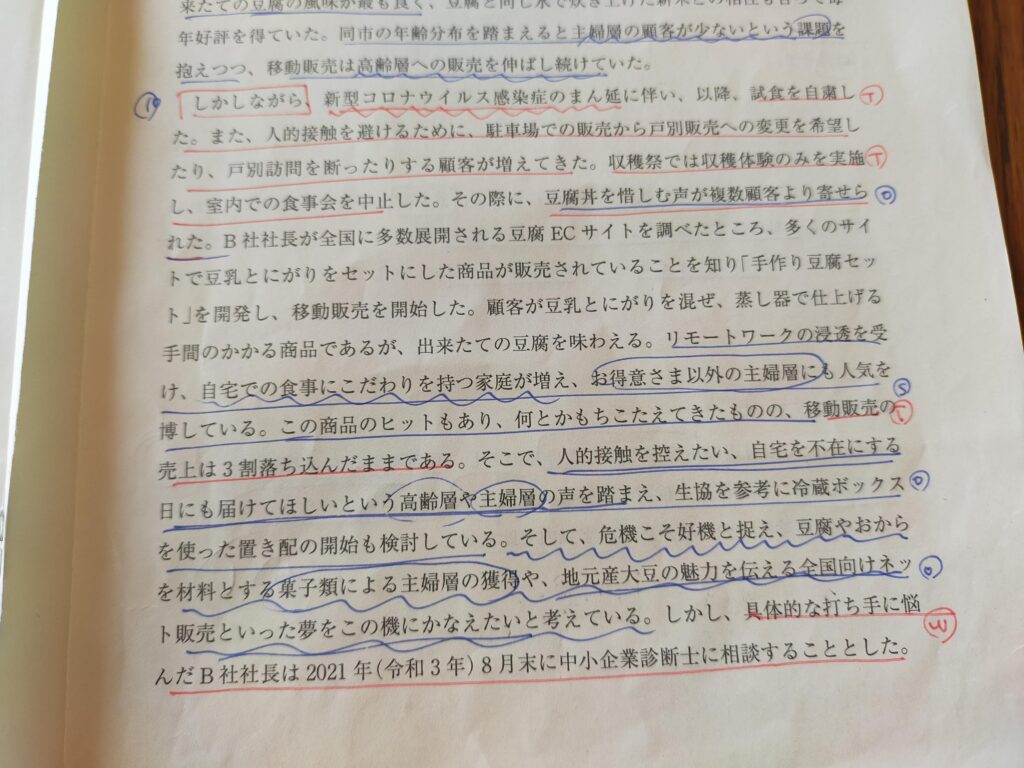 来たての豆腐の風味が最も良く、豆腐と同じ水で炊き上げた新米との相性も合って毎
年好評を得ていた。同市の年齢分布を踏まえると主婦層の顧客が少ないという課題を
抱えつつ、移動販売は高齢層への販売を伸ばし続けていた。
⑲ しかしながら、新型コロナウイルス感染症のまん延に伴い、以降、試食を自粛し Ⓣ
た。また、人的接触を避けるために、駐車場での販売から戸別販売への変更を希望し
たり、戸別訪問を断ったりする顧客が増えてきた。収穫祭では収穫体験のみを実施 Ⓣ
し、室内での食事会を中止した。その際に、豆腐丼を惜しむ声が複数顧客より寄せら Ⓞ
れた。B社社長が全国に多数展開される豆腐ECサイトを調べたところ、多くのサイ
トで豆乳とにがりをセットにした商品が販売されていることを知り「手作り豆腐セッ
ト」を開発し、移動販売を開始した。顧客が豆乳とにがりを混ぜ、蒸し器で仕上げる
手間のかかる商品であるが、出来たての豆腐を味わえる。リモートワークの浸透を受
け、自宅での食事にこだわりを持つ家庭が増え、お得意さま以外の主婦層にも人気を
博している。この商品のヒットもあり、何とかもちこたえてきたものの、移動販売の Ⓢ Ⓣ
売上は3割落ち込んだままである。そこで、人的接触を控えたい、自宅を不在にする
日にも届けてほしいという高齢層や主婦層の声を踏まえ、生協を参考に冷蔵ボックス Ⓞ
を使った置き配の開始も検討している。そして、危機こそ好機と捉え、豆腐やおから
を材料とする菓子類による主婦層の獲得や、地元産大豆の魅力を伝える全国向けネッ Ⓞ
ト販売といった夢をこの機にかなえたいと考えている。しかし、具体的な打ち手に悩 Ⓦ
んだB社社長は2021年(令和3年)8月末に中小企業診断士に相談することとした。